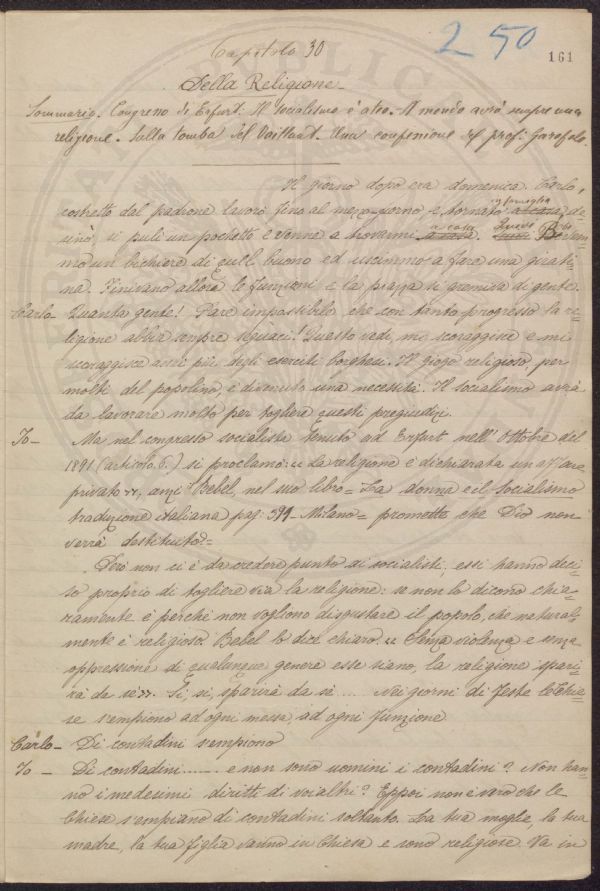 Capitolo 30
250
161
Della Religione_
Sommario. Congresso di Erfurt: Il socialismo è ateo.- Il mondo avrà sempre una
religione. Sulla tomba del Vaillant. Una confessione del prof: Garofolo.
Il giorno dopo era domenica. Carlo,
costretto dal padrone lavorò fino al mezzo-giorno e, tornato in famiglia de-
sinò, si pulì un pochetto e venne a trovarmi a casa. Beven-
mo un bichiere di quel buono ed uscimmo a fare una girati-
na. Finivano allora le funzioni e la piazza si gremiva di gente.
Carlo_ Quanta gente! Pare impossibile che con tanto progresso la re-
ligione abbia sempre seguaci! Questo vedi, mi scoraggisce e mi
scoraggisce assai più degli eserciti borghesi. Il giogo religioso, per
molti del popolino, è divenuto una necessità. Il socialismo avrà
da lavorare molto per togliere questi pregiudizi.
Io_ Ma nel congresso socialista tenuto ad Erfurt nell'Ottobre del
1891 (articolo 6.) si proclamò: "La religione è dichiarata un affare
privato", anzi Bebel, nel suo libro= La donna e il socialismo
traduzione italiana pag: 391- Milano= promette che Dio non
verrà destituito?=
Però non ci è da credere punto ai socialisti; essi hanno deci-
so proprio di togliere via la religione: se non lo dicono chia-
ramente è perchè non vogliono disgustare il popolo, che natural-
mente è religioso. Bebel lo dice chiaro "Senza violenza e senza
oppressione di qualunque genere esse siano, la religione spari-
rà da sè". Sì, sì, sparirà da sè.... Nei giorni di feste le Chie-
se s'empiono ad ogni messa, ad ogni funzione
Carlo_ Di contadini s'empiono
Io_ Di contadini....... e non sono uomini i contadini? Non han-
no i medesimi diritti di voialtri? Eppoi non è vero che le
Chiese s'empiano di contadini soltanto. La tua moglie, la tua
madre, la tua figlia vanno in Chiesa e sono religiose. Va in